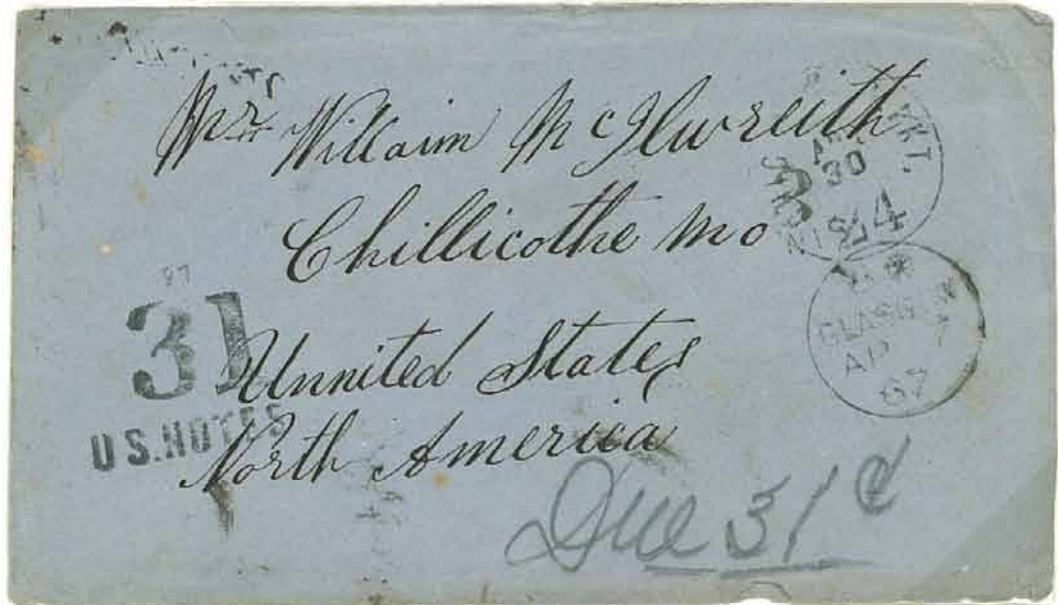 Mr. Willaim McIlwreith
Chillicothe Mo
Unnited States
North America
30
24
GLASGOW
AP 7
67
31
U S. NOTES
Due 31 ¢